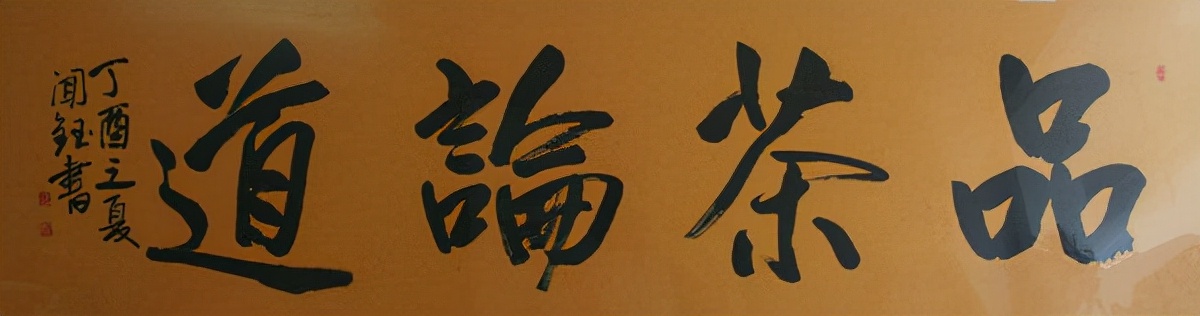 品茶論道
丁酉之夏
闻鈺書